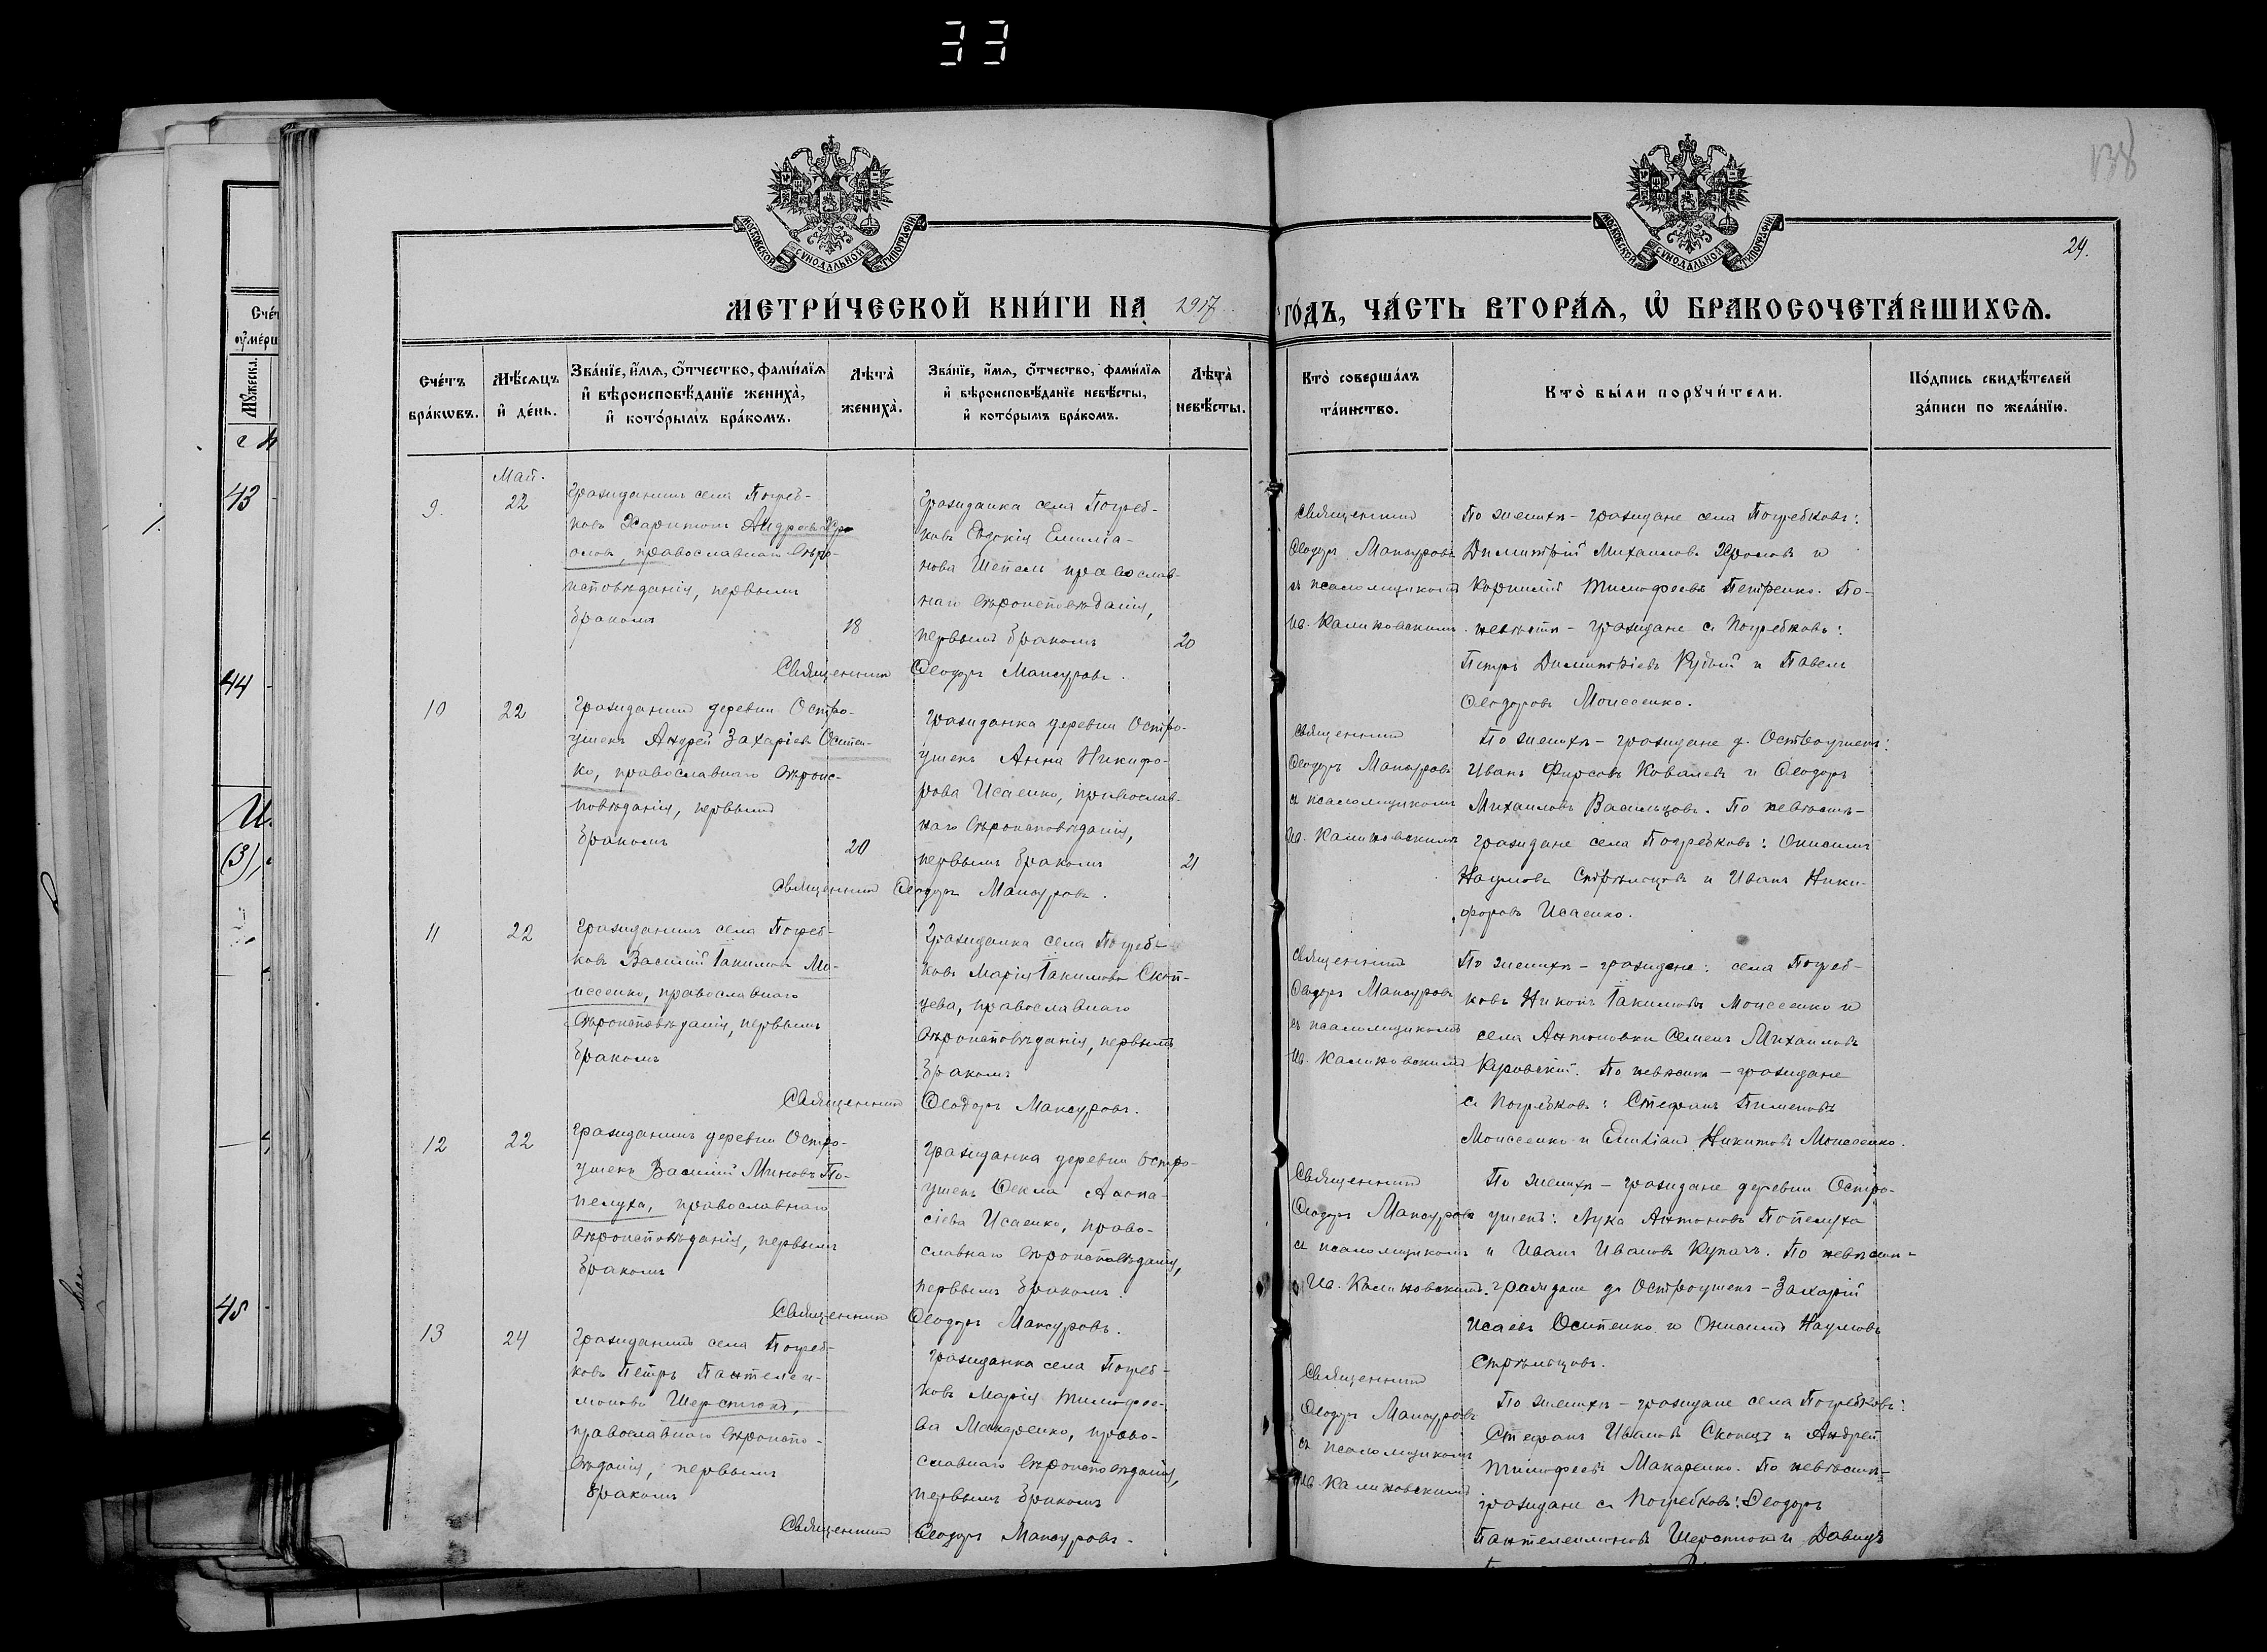 33
138
МОСКОВСКОЙ СѴНОДАЛЬНОЙ ТИПОГРАФІИ
МОСКОВСКОЙ СѴНОДАЛЬНОЙ ТИПОГРАФІИ
29.
МЕТРИ́ЧЕСКОЙ КНИ́ГИ НА 1917 ГО́ДЪ, ЧА́СТЬ ВТОРА́Ѧ, Ѽ БРАКОСОЧЕТА́ВШИХСѦ.
Сче́тъ бра́кѡвъ.
Мѣ́сѧцъ и҆ де́нь.
Зва́нїе, и҆́мѧ, ѻ҆́тчество, фами́лїѧ
и҆ вѣроисповѣ́данїе жениха̀,
и҆ кото́рымъ бра́комъ.
Лѣ́та̀ жениха̀.
Зва́нїе, и҆́мѧ, ѻ҆́тчество, фами́лїѧ
и҆ вѣроисповѣ́данїе невѣ́сты,
и҆ кото́рымъ бра́комъ.
Лѣ́та̀ невѣ́сты.
Кто̀ соверша́лъ
та́инство.
Кто̀ бы́ли порꙋчи́тели.
По́дпись свидѣ́телей
за́писи по жела́нїю.
Май.
9.
22
Гражданинъ села Погреб-
ковъ Харитонъ Андреевъ Хро-
оловъ, православнаго вѣро-
исповѣданія, первымъ
бракомъ
18
Гражданка села Погреб-
ковъ Евдокія Емиліа-
нова Шепель православ-
наго вѣроисповѣданія,
первымъ бракомъ
20
Священникъ Ѳеодоръ Мансуровъ.
Священникъ
Ѳеодоръ Мансуровъ
съ псаломщикомъ
Ив. Калиновскимъ.
По женихѣ – граждане села Погребковъ:
Димитрій Михаиловъ Хроловъ и
Корнилій Тимофеевъ Петренко. По
невѣстѣ – граждане с. Погребковъ:
Петръ Димитріевъ Рудый и Павелъ
Ѳеодоровъ Моисеенко.
10
22
Гражданинъ деревни Остро-
ушекъ Андрей Захаріевъ Осипен-
ко, православнаго вѣроис-
повѣданія, первымъ
бракомъ
20
Гражданка деревни Остро-
ушекъ Анна Никифо-
рова Исаенко, православ-
наго вѣроисповѣданія,
первымъ бракомъ
21
Священникъ Ѳеодоръ Мансуровъ.
Священникъ
Ѳеодоръ Мансуровъ
съ псаломщикомъ
Ив. Калиновскимъ
По женихѣ – граждане д. Остроушекъ:
Иванъ Фирсовъ Ковалевъ и Ѳеодоръ
Михаиловъ Васильцовъ. По невѣстѣ –
граждане села Погребковъ: Онисимъ
Наумовъ Стрѣльцовъ и Иванъ Ники-
форовъ Исаенко.
11
22
Гражданинъ села Погреб-
ковъ Василій Іакимовъ Мо-
исеенко, православнаго
вѣроисповѣданія, первымъ
бракомъ
Гражданка села Погреб-
ковъ Марія Іакимова Скоп-
цева, православнаго
вѣроисповѣданія, первымъ
бракомъ
Священникъ Ѳеодоръ Мансуровъ.
Священникъ
Ѳеодоръ Мансуровъ
съ псаломщикомъ
Ив. Калиновскимъ
По женихѣ – граждане: села Погреб-
ковъ Никонъ Іакимовъ Моисеенко и
села Антоновки Семенъ Михаиловъ
По невѣстѣ – граждане
с. Погребковъ: Стефанъ Пименовъ
Моисеенко и Емиліанъ Никитовъ Моисеенко.
12
22
Гражданинъ деревни Остро-
ушекъ Василій Миновъ По-
пелуха, православнаго
вѣроисповѣданія, первымъ
бракомъ
Гражданка деревни Остро-
ушекъ Ѳекла Аѳана-
сіева Исаенко, право-
славнаго вѣроисповѣданія,
первымъ бракомъ.
Священникъ Ѳеодоръ Мансуровъ.
Священникъ
Ѳеодоръ Мансуровъ
съ псаломщикомъ
Ив. Калиновскимъ.
По женихѣ – граждане деревни Остро-
ушекъ: Лука Антоновъ Попелуха
и Иванъ Ивановъ Купачъ. По невѣстѣ –
граждане д. Остроушекъ – Захарій
Исаевъ Осипенко и Онисимъ Наумовъ
Стрѣльцовъ.
13
24
Гражданинъ села Погреб-
ковъ Петръ Пантелеи-
моновъ Шерстюкъ,
православнаго вѣроиспо-
вѣданія, первымъ
бракомъ
Гражданка села Погреб-
ковъ Марія Тимофее-
ва Макаренко, право-
славнаго вѣроисповѣданія,
первымъ бракомъ
Священникъ Ѳеодоръ Мансуровъ.
Священникъ
Ѳеодоръ Мансуровъ
съ псаломщикомъ
Ив. Калиновскимъ
По женихѣ – граждане села Погребковъ:
Стефанъ Ивановъ Скопецъ и Андрей
Тимофеевъ Макаренко. По невѣстѣ –
граждане с. Погребковъ: Ѳеодоръ
Пантелеимоновъ Шерстюкъ и Давидъ
43
44
45